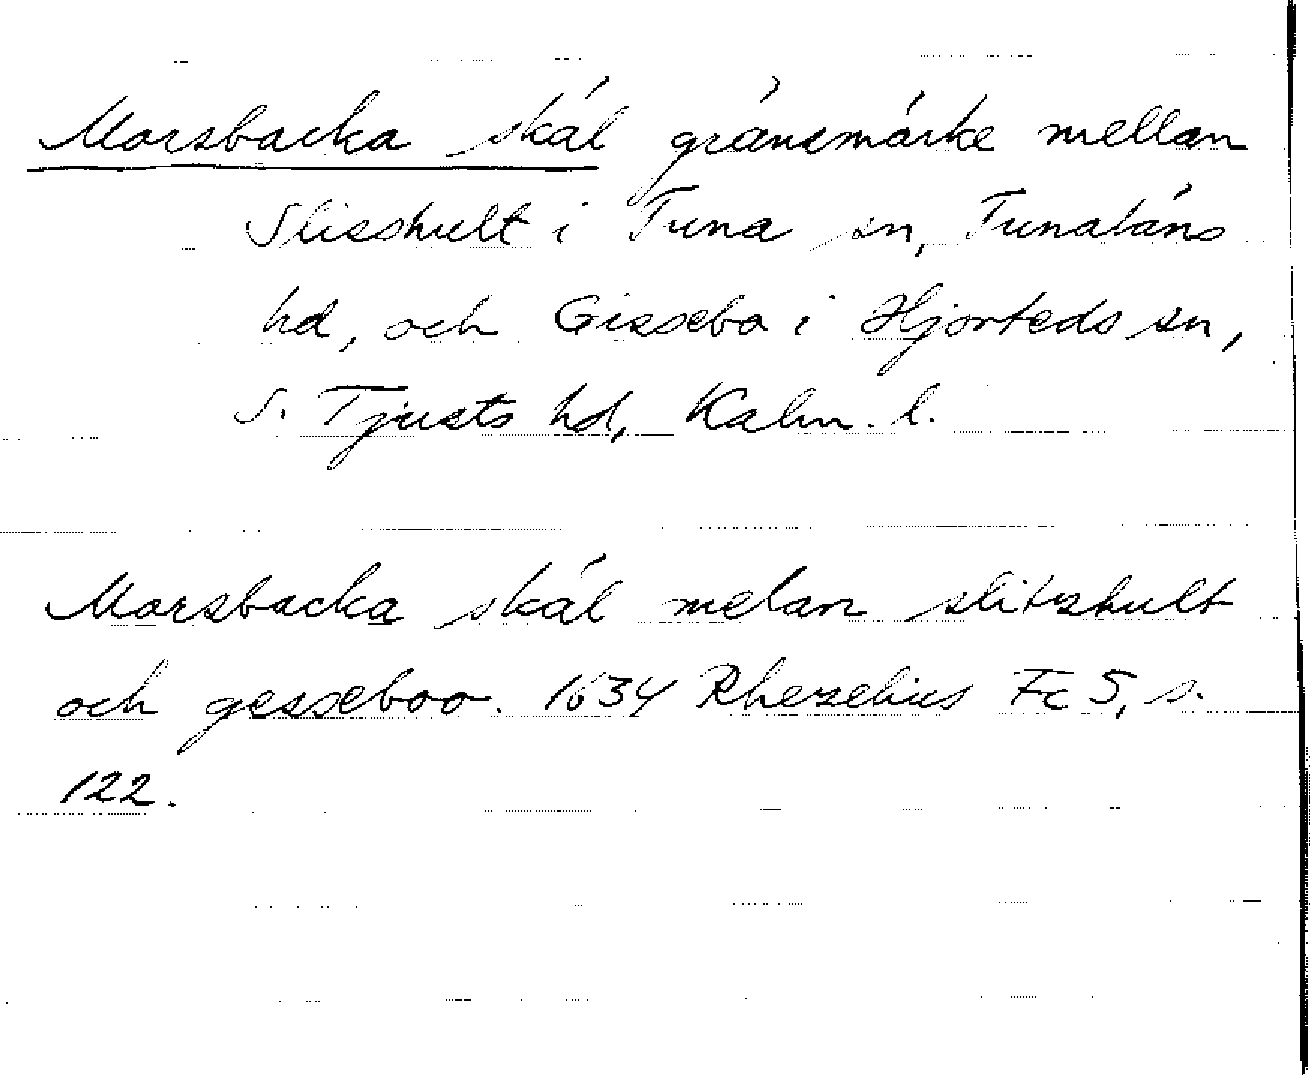 Morsbacka skäl gränsmärke mellan
Slisshult i Tuna sn, Tunaläns
hd, och Gissebo i Hjorteds sn,
S. Tjusts hd, Kalm. l.
Morsbacka skäl melan slitzhult
och gesseboo. 1634 Rhezelius Fc 5, s.
122.